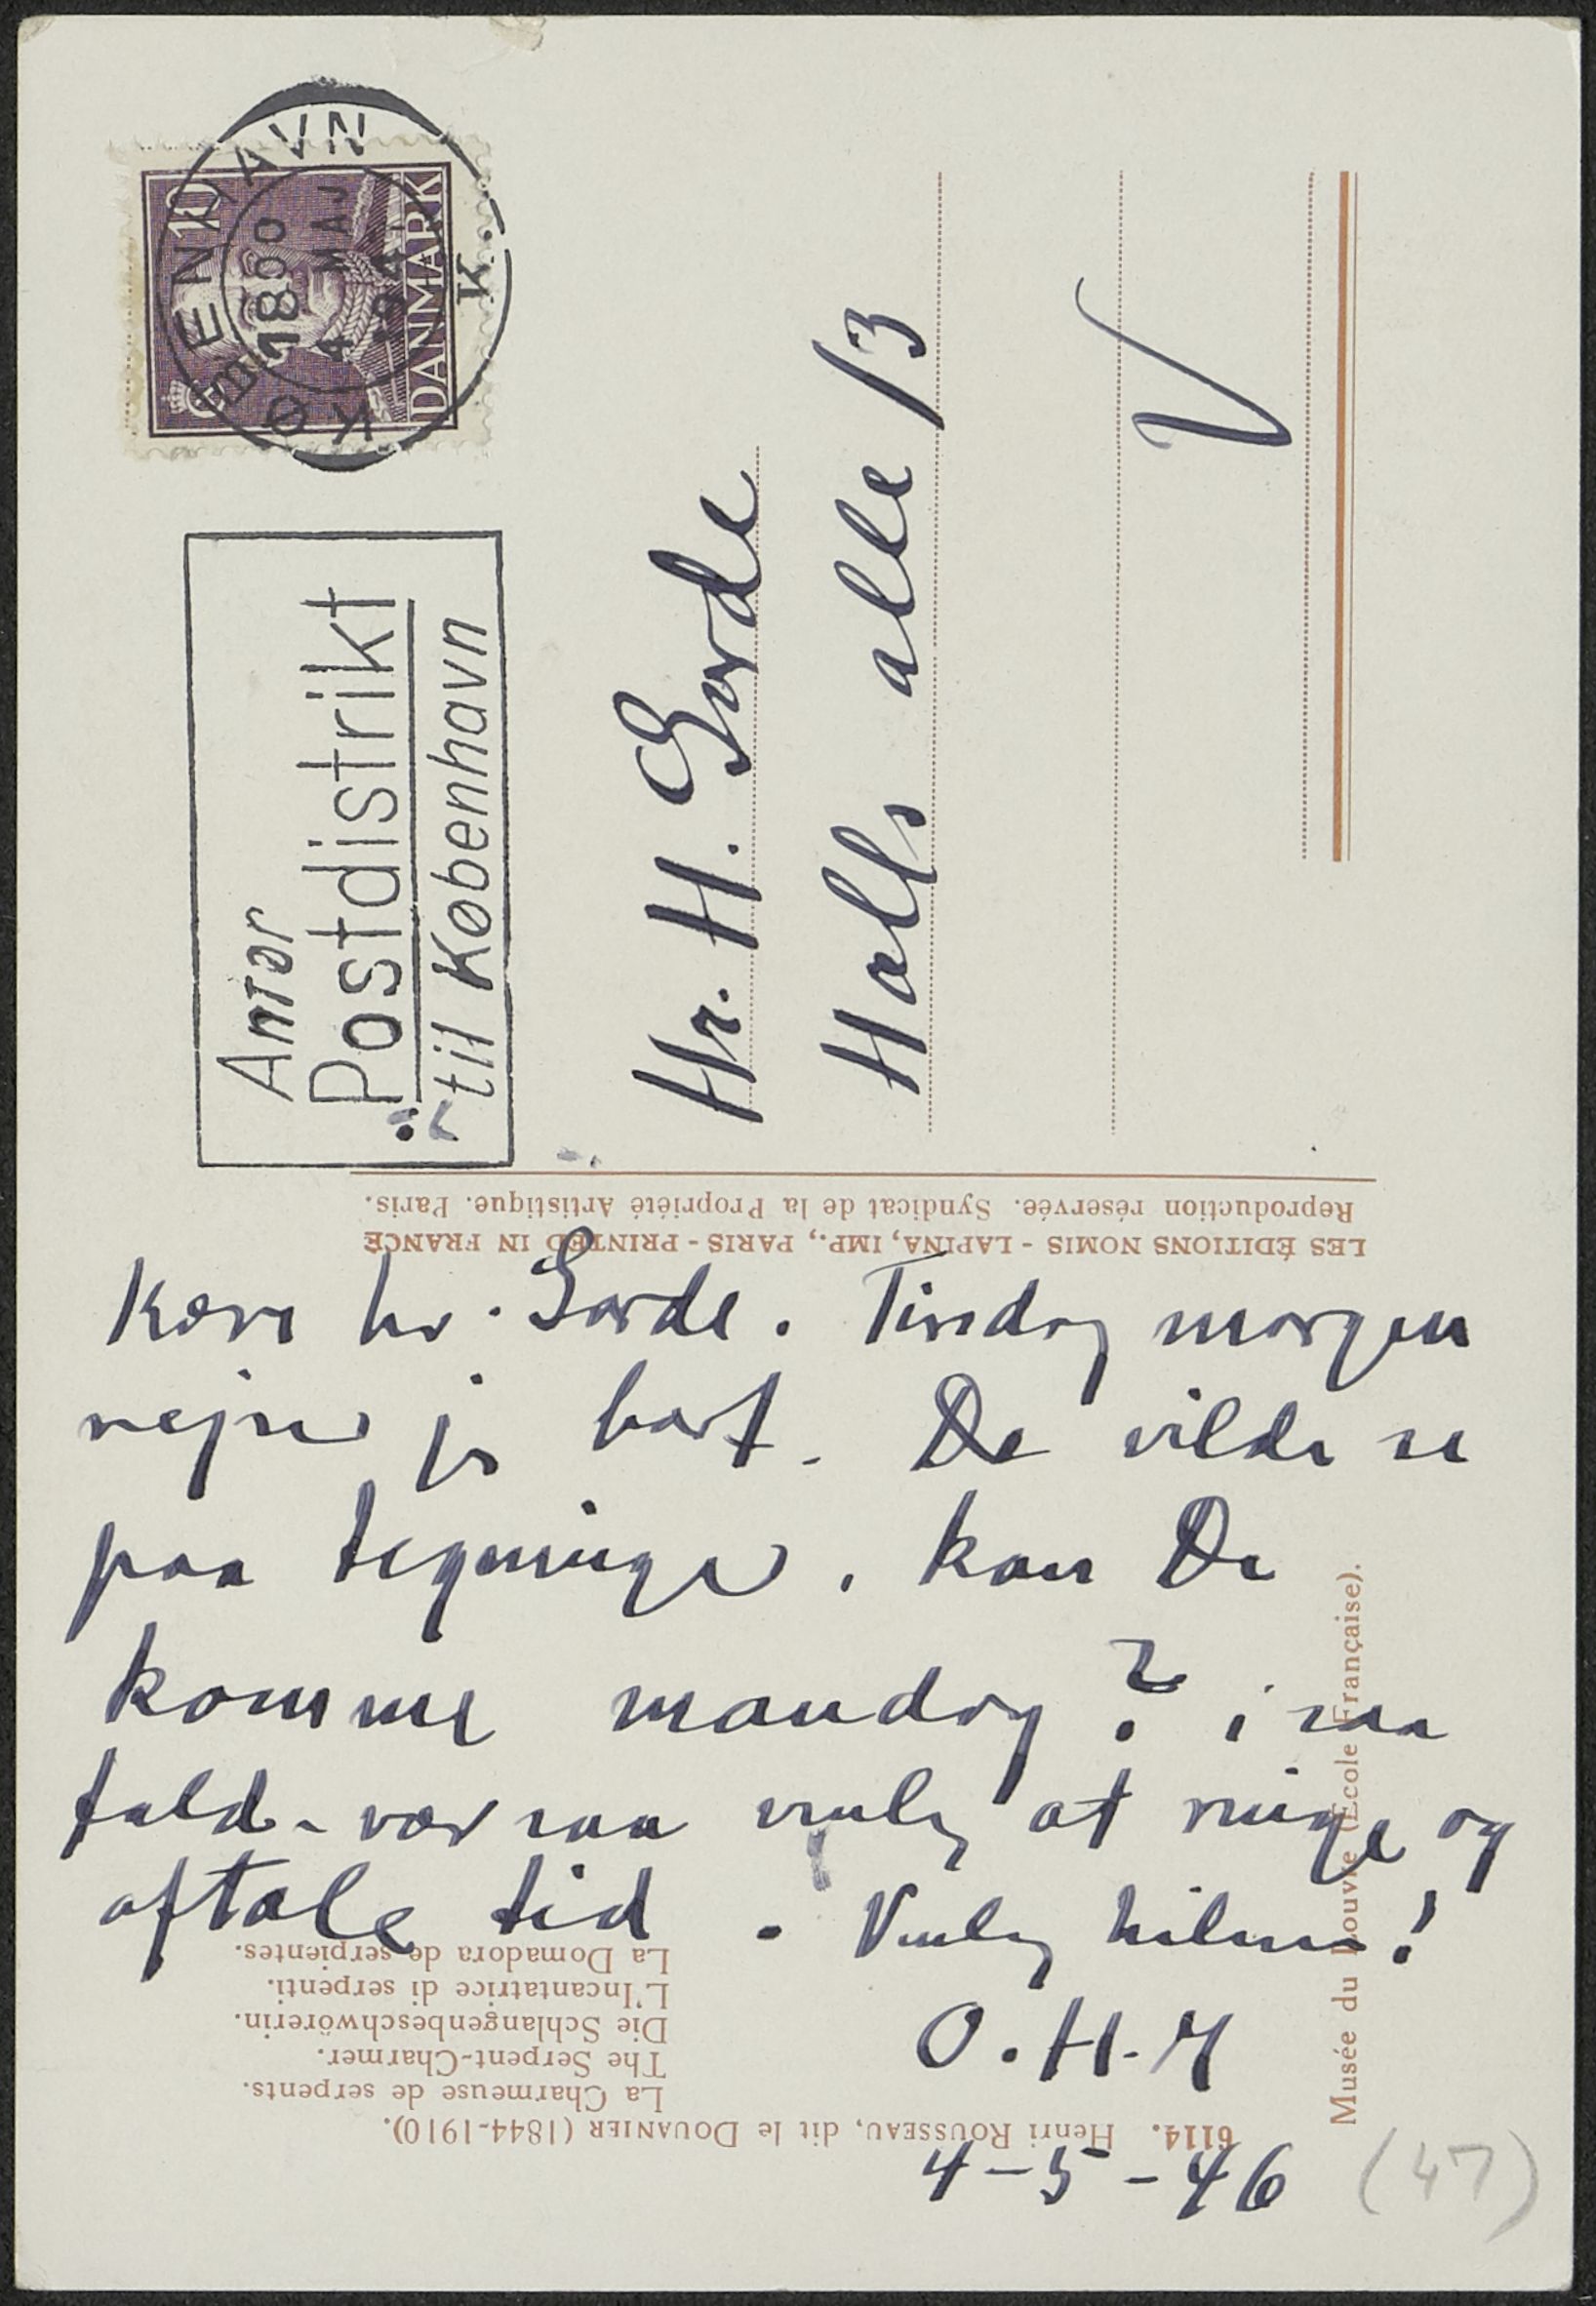 KØBENHAVN
1800
4 MAJ
K.
10
DANMARK
Anfør
Postdistrikt
til København
Hr. H. Gorde
Halls alle 13
V
Reproduction réservée. Syndicat de la Propriété Artistique. Paris.
LES ÉDITIONS NOMIS - LAPINA, IMP., PARIS - PRINTED IN FRANCE
Kære hr. Gorde. Tirsdag morgen
rejser jeg bort. De vilde se
paa tegninger. kan De
komme mandag? i saa
fald - vær saa venlig at ringe og
aftale tid. Venlig hilsen!
O.H.M
4-5-46
(47)
6114. Henri ROUSSEAU, dit le DOUANIER (1844-1910).
La Charmeuse de serpents.
The Serpent-Charmer.
Die Schlangenbeschwörerin.
L'Incantatrice di serpenti.
La Domadora de serpientes.
Musée du Louvre (École Française).